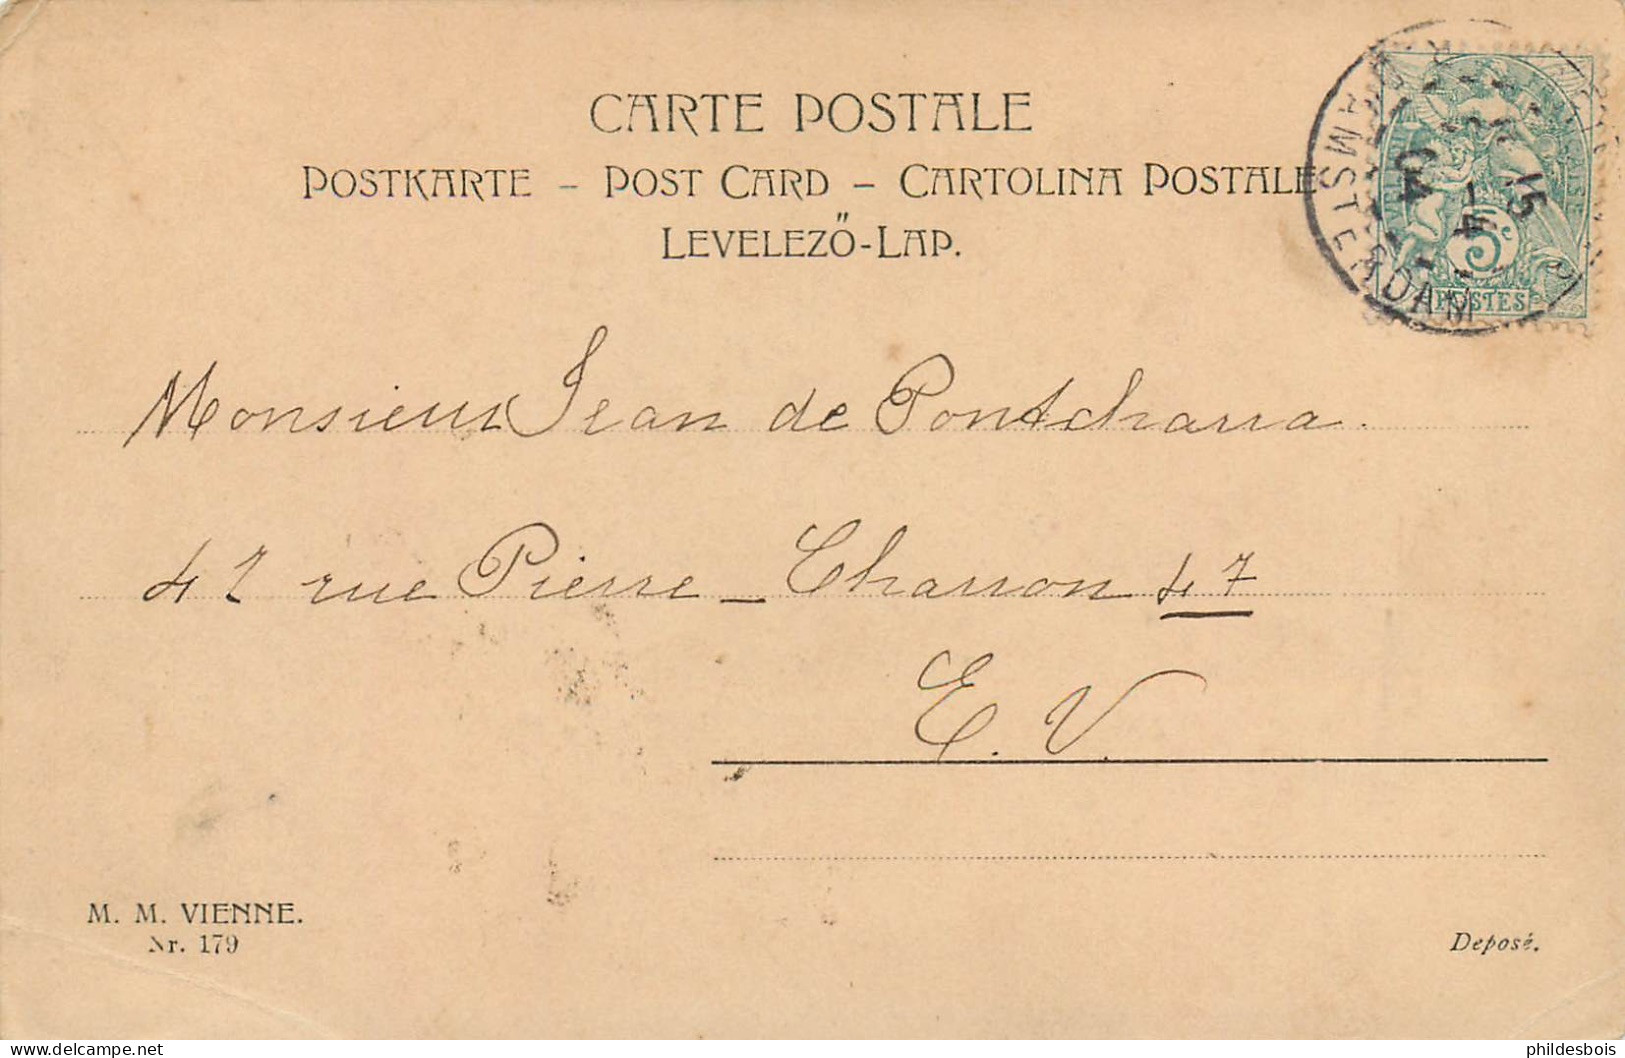 CARTE POSTALE
POSTKARTE – POST CARD – CARTOLINA POSTALE
LEVELEZŐ-LAP.
AMSTERDAM
15
4
04
5c
POSTES
Monsieur Jean de Pontcharra.
42 rue Pierre–Charron 47
E. V.
M. M. VIENNE.
Nr. 179
Deposé.
delcampe.net
phildesbois